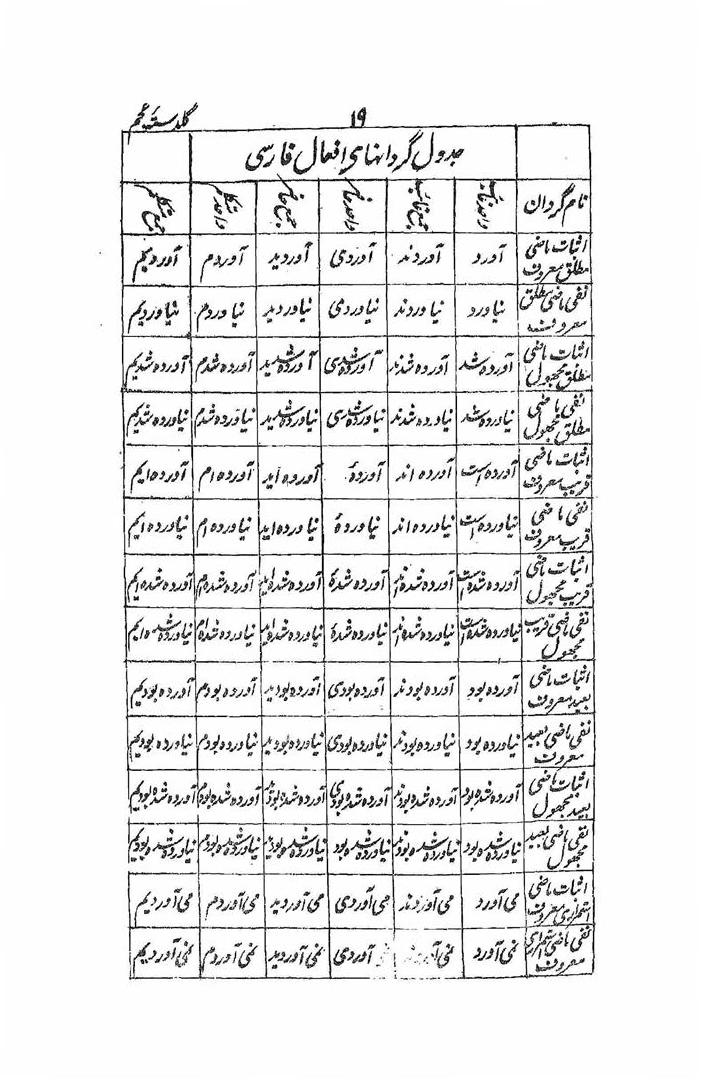 ۱۹ گلدستۂ عجم
جدول گردانهای افعال فارسی
نام گردان واحد غائب جمع غائب واحد حاضر جمع حاضر واحد متکلم جمع متکلم
اثبات ماضی مطلق معروف آورد آوردند آوردی آوردید آوردم آوردیم
نفی ماضی مطلق معروف نیاورد نیاوردند نیاوردی نیاوردید نیاوردم نیاوردیم
اثبات ماضی مطلق مجهول آورده شد آورده شدند آورده شدی آورده شدید آورده شدم آورده شدیم
نفی ماضی مطلق مجهول نیاورده شد نیاورده شدند نیاورده شدی نیاورده شدید نیاورده شدم نیاورده شدیم
اثبات ماضی قریب معروف آورده است آورده اند آوردۂ آورده اید آورده ام آورده ایم
نفی ماضی قریب معروف نیاورده است نیاورده اند نیاوردۂ نیاورده اید نیاورده ام نیاورده ایم
اثبات ماضی قریب مجهول آورده شده است آورده شده اند آورده شدۂ آورده شده اید آورده شده ام آورده شده ایم
نفی ماضی قریب مجهول نیاورده شده است نیاورده شده اند نیاورده شدۂ نیاورده شده اید نیاورده شده ام نیاورده شده ایم
اثبات ماضی بعید معروف آورده بود آورده بودند آورده بودی آورده بودید آورده بودم آورده بودیم
نفی ماضی بعید معروف نیاورده بود نیاورده بودند نیاورده بودی نیاورده بودید نیاورده بودم نیاورده بودیم
اثبات ماضی بعید مجهول آورده شده بود آورده شده بودند آورده شده بودی آورده شده بودید آورده شده بودم آورده شده بودیم
نفی ماضی بعید مجهول نیاورده شده بود نیاورده شده بودند نیاورده شده بود نیاورده شده بودید نیاورده شده بودم نیاورده شده بودیم
اثبات ماضی استمراری معروف می آورد می آوردند می آوردی می آوردید می آوردم می آوردیم
نفی ماضی استمراری معروف نمی آورد نمی آوردی نمی آوردید نمی آوردم نمی آوردیم